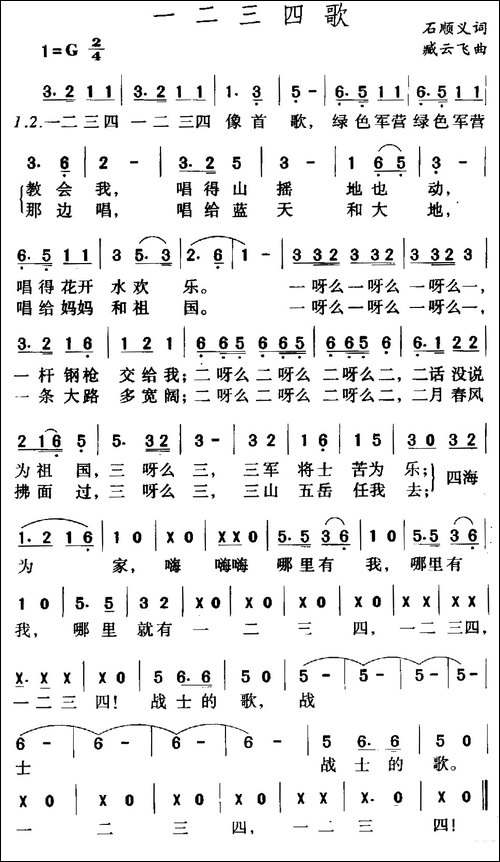 一二三四歌
石顺义词
1=G 2/4
臧云飞曲
3. 2 1 1 | 3. 2 1 1 | 1. 3 | 5 - | 6. 5 1 1 | 6. 5 1 1 |
1.2.一二三四 一二三四 像首 歌,绿色军营绿色军营
3. 6 | 2 - | 3. 2 5 | 3 - | 1 6 5 | 3 - |
教会我, 唱得山 摇 地也 动,
那边唱, 唱给蓝 天 和大 地,
6. 5 1 1 | 3 5. 3 | 2. 6 | 1 - | 3 3 2 3 3 2 | 3 3 2 3 |
唱得花开 水欢 乐。 一呀么一呀么 一呀么一,
唱给妈妈 和祖 国。 一呀么一呀么 一呀么一,
3. 2 1 6 | 1 2 1 | 6 6 5 6 6 5 | 6 6 5 6 | 6. 1 2 2 |
一杆钢枪 交给我;二呀么二呀么 二呀么二,二话没说
一条大路 多宽阔;二呀么二呀么 二呀么二,二月春风
2 1 6 | 5 - | 5. 3 2 | 3 - | 3 2 1 2 | 1 6 | 1 5 | 3 0 3 2 |
为祖 国,三 呀么 三, 三军 将士 苦为 乐; 四海
拂面 过,三 呀么 三, 三山 五岳 任我 去;
1. 2 1 6 | 1 0 | X 0 | X X 0 | 5. 5 3 6 | 1 0 | 5. 5 3 6 |
为 家, 嗨 嗨嗨 哪里有 我,哪里有
1 0 | 5. 5 | 3 2 | X 0 | X 0 | X 0 | X 0 | X X | X X |
我, 哪里 就有 一 二 三 四,一二 三四,
X. X X | X 0 | 5 5 | 5 6. 6 | 5 0 | 5 - | 5 - | 5 - |
一二三 四! 战士 的 歌,战
6 - | 6 - | 6 - | 6 - | 5 5 | 5 6. 6 | 5 0 |
士 战士 的 歌。
X 0 | X 0 | X 0 | X 0 | X X | X. X | X 0 | X 0 ‖
一 二 三 四,一二 三 四!